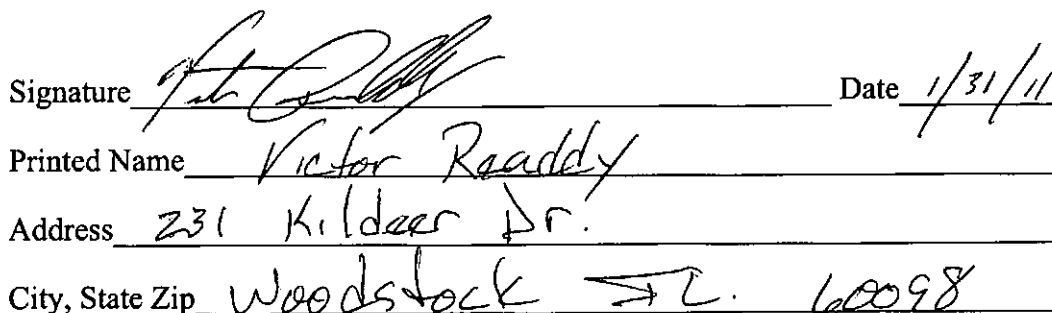 Signature Date 1/31/11
Printed Name Victor Readdy
Address 231 Kildeer Dr.
City, State Zip Woodstock IL. 60098